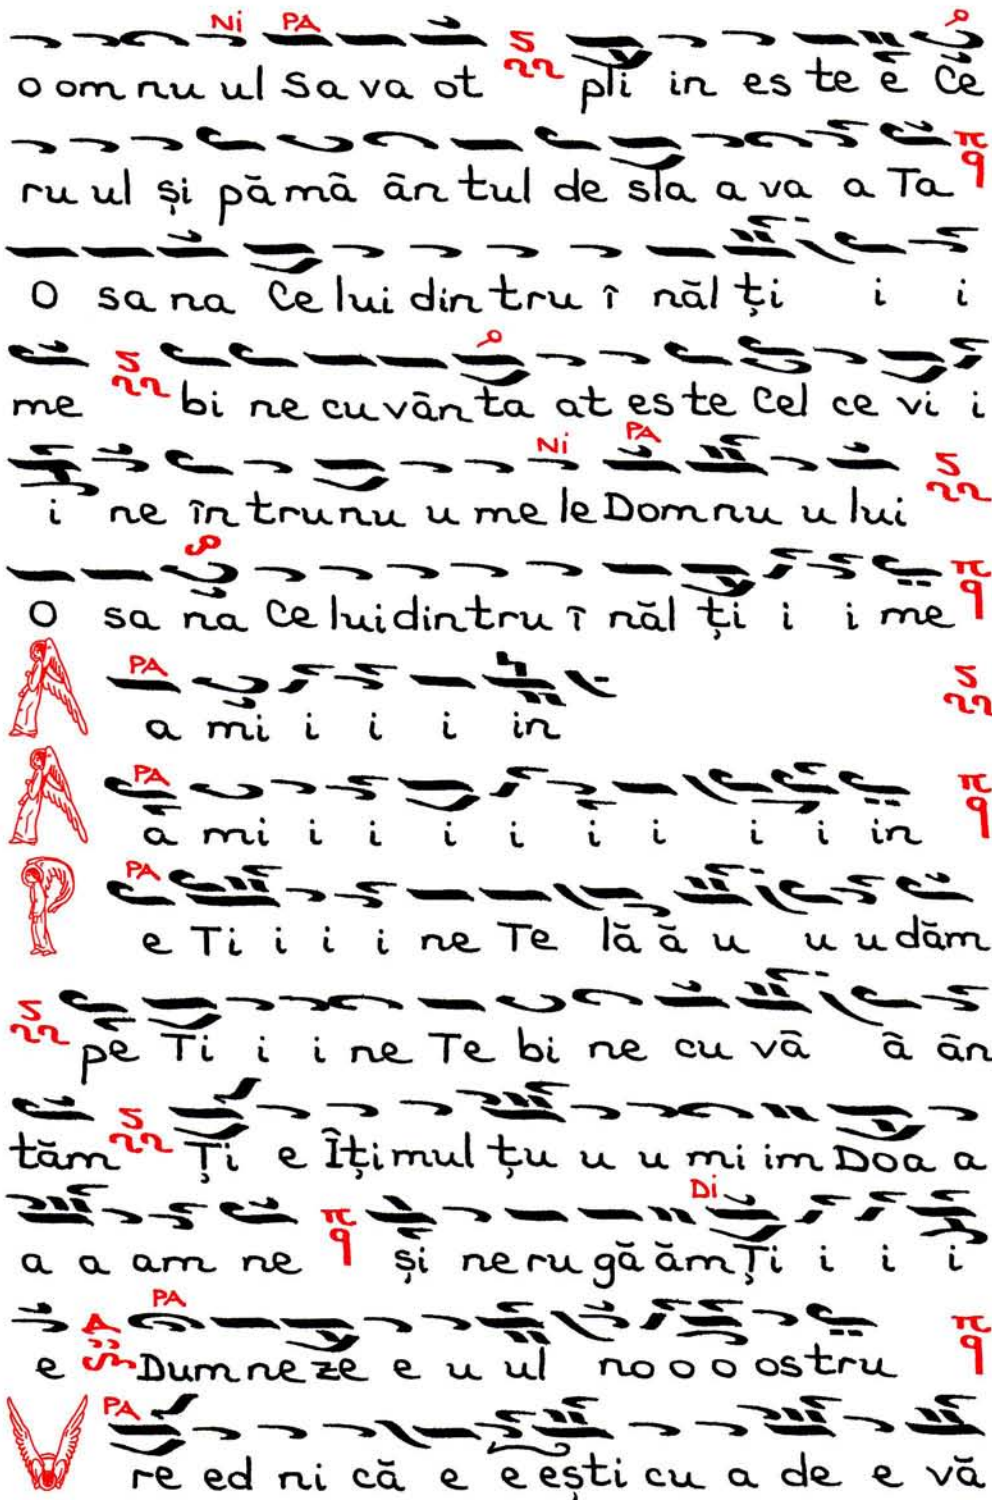 Ni PA
o om nu ul Sa va ot pli in es te e Ce
ru ul și pă mâ ân tul de sla a va a Ta
O sa na Ce lui din tru î năl ți i i
me bi ne cu vân ta at es te Cel ce vi i
Ni PA
i ne în tru nu u me le Dom nu u lui
O sa na Ce lui din tru î năl ți i i me
PA
A a mi i i i in
PA
A a mi i i i i i i i i in
PA
P e Ti i i i ne Te lă ă u u u dăm
pe Ti i i ne Te bi ne cu vâ â ân
tăm Ți e Îți mul țu u u mi im Doa a
Di
a a am ne și ne ru gă ăm Ți i i i
PA
e Dum ne ze e u ul no o o ostru
PA
V re ed ni că e e ești cu a de e vă